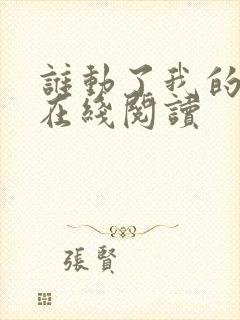 誰動了我的
在綫閱讀
張賢